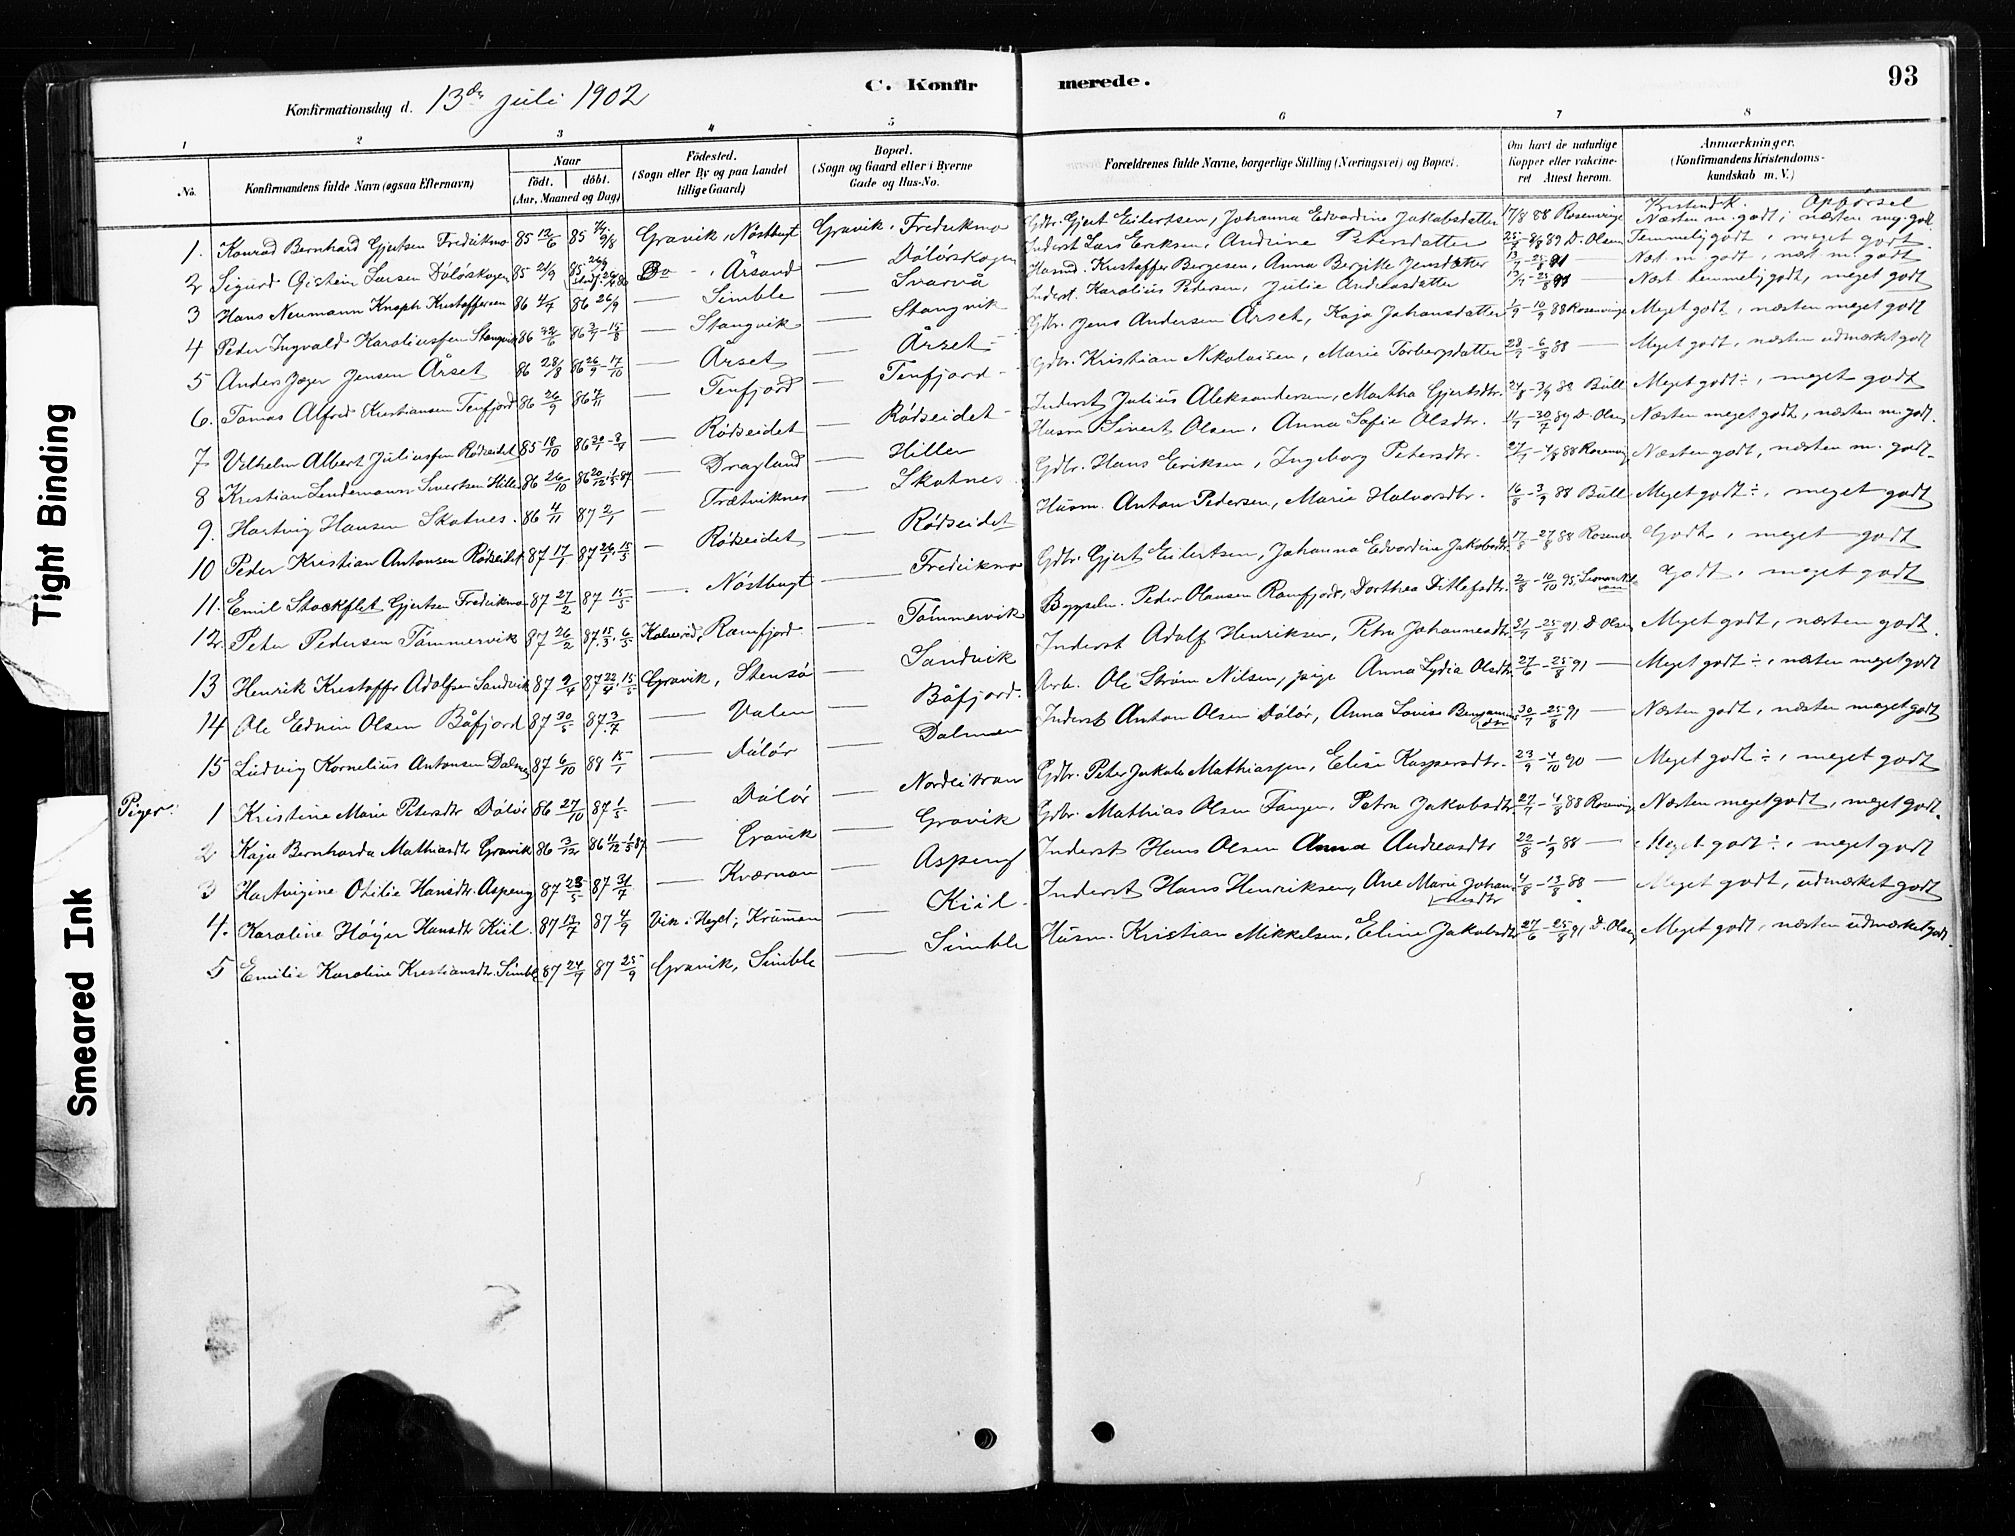 93
C. Konfirmerede.
Konfirmationsdag d. 13de juli 1902
1 2 3 4 5 6 7 8
No.
Konfirmandens fulde Navn (ogsaa Efternavn)
Naar
födt. döbt.
(Aar, Maaned og Dag)
Födested.
(Sogn eller By og paa Landet
tillige Gaard)
Bopæl.
(Sogn og Gaard eller i Byerne
Gade og Hus-No.
Forældrenes fulde Navne, borgerlige Stilling (Næringsvei) og Bopæl.
Om havt de naturlige
Kopper eller vakcine-
ret Attest herom.
Anmærkninger.
(Konfirmandens Kristendoms-
kundskab m. V.)
Kristendk. Opførsel
1. Konrad Bernhard Gjertsen Fredrikmo 85 12/6 85 9/8 Gravik, Nöstbugt Gravik, Fredrikmo Gdbr. Gjert Eilertsen, Johanna Edvardine Jakobsdatter 17/8 88 Rosenvinge Næsten m. godt; næsten meg. godt
2 Sigurd Öistein Larsen Dölörskogen 85 21/9 85 26/9 Do - Årsand — Dölörskogen Inderst Lars Eriksen, Andrine Petersdatter 89 D. Olsen Temmelig godt, meget godt.
3 Hans Neumann Knoph Kristoffersen 86 4/7 86 26/9 — Simble — Svarvå Husmd. Kristoffer Bergesen, Anna Bergitte Jensdatter 91 — Næst m. godt, næst m. godt
4 Peder Ingvald Karoliussen Stangvik 86 86 — Stangvik — Stangvik Inderst. Karolius Pedersen, Julie Andreasdatter 91 — Næst temmelig godt, meget godt
5 Anders Jæger Jensen Årset 86 28/8 86 26/9 - 17/10 — Årset — Årset Gdbr. Jens Andersen Årset, Kaja Johansdatter 1/9 - 10/9 88 Rosenvinge Meget godt, næsten meget godt
6. Tomas Alfred Kristiansen Tenfjord 86 26/9 86 7/11 — Tenfjord — Tenfjord Gdbr. Kristian Nikolaisen, Marie Torbergsdatter 88 — Meget godt, næsten udmærket godt
7 Vilhelm Albert Juliussen Rödseidet 85 18/10 86 — Rödseidet — Rödseidet Inderst Julius Aleksandersen, Martha Gjertsdtr. 88 Bull Meget godt ÷, meget godt
8 Kristian Lindemann Sivertsen Hiller 86 26/10 86 20/12 - 1/5 - 87 — Dragland — Hiller Husm. Sivert Olsen, Anna Sofie Olsdtr. 11/7 - 30/7 89 D. Olsen Næsten meget godt, næsten m. godt.
9. Hartvig Hansen Skotnes. 86 4/11 87 2/1 — Trætviknes — Skotnes Gdbr. Hans Eriksen, Ingeborg Petersdtr. 88 Rosenving Næsten godt, næsten m. godt.
10 Peder Kristian Antonsen Rödseidet 87 17/1 87 — Rödseidet — Rödseidet Husm. Anton Pedersen, Marie Halvorsdtr. 16/8 - 3/9 88 Bull Meget godt ÷, meget godt
11. Emil Stockflet Gjertsen Fredrikmo 87 27/2 87 15/5 — Nöstbugt — Fredrikmo Gdbr. Gjert Eilertsen, Johanna Edvardine Jakobsdtr 17/8 - 27/8 88 Rosenv. Godt, meget godt
12. Peter Pedersen Tömmervik 87 26/2 87. 15/3. 6/5 Kolvereid, Ramfjord — Tömmervik Bygselm. Peder Olausen Ramfjord, Dorthea Ditlefsdtr. 2/8 - 10/10 95. Godt, meget godt
13 Henrik Kristoffer Adolfsen Sandvik 87 9/4 87 22/4. 15/5 Gravik, Stensö — Sandvik Inderst Adolf Henriksen, Petra Johannesdtr. 31/7 - 25/8 91 D. Olsen Meget godt, næsten godt.
14 Ole Edvin Olsen Båfjord 87 30/5 87. 3/7 — Valen — Båfjord. Arb. Ole Ström Nilsen, pige Anna Lydia Olsdtr. 27/6 - 25/8 91 — Meget godt ÷, næsten meget godt
15 Ludvig Kornelius Antonsen Dalmen 87 6/10 88 15/1 — Dölör — Dalmen Inderst Anton Olsen Dölör, Anna Lovise Benjaminsdtr 30/7 - 25/8 91 — Næsten godt, næsten meget godt
Piger: 1 Kristine Marie Petersdtr Dölör 86 27/10 87 1/5 — Dölör — Nordeitran Gdbr. Peter Jakob Mathiassen, Elise Kaspersdtr. 23/9 - 4/10 90 — Meget godt ÷, meget godt
2 Kaja Bernharda Mathiasdtr Gravik 86 3/12 86 — Gravik — Gravik Gdbr. Mathias Olsen Fangen, Petra Jakobsdtr. 88 Rosenving Næsten meget godt, meget godt.
3 Hartvigine Otilie Hansdtr. Aspeng 87 23/5 87 31/7 — Kværnan — Aspeng Inderst Hans Olsen Anna Andreasdtr 22/8 - 1/9 88 — Meget godt ÷, meget godt
4. Karoline Höyer Hansdtr Kiil. 87 13/7 87 4/9 Vik i Hegel; Krümon — Kiil. Inderst Hans Henriksen, Ane Marie Johannesdtr 4/8 - 13/8 88 — Meget godt, udmærket godt
5 Emilie Karoline Kristiansdtr. Simble 87 24/7 87 25/9 Gravik, Simble — Simble Husm. Kristian Mikkelsen, Eline Jakobsdtr 27/6 - 25/8 91 D. Olsen Meget godt, næsten udmærket godt.
Tight Binding
Smeared Ink